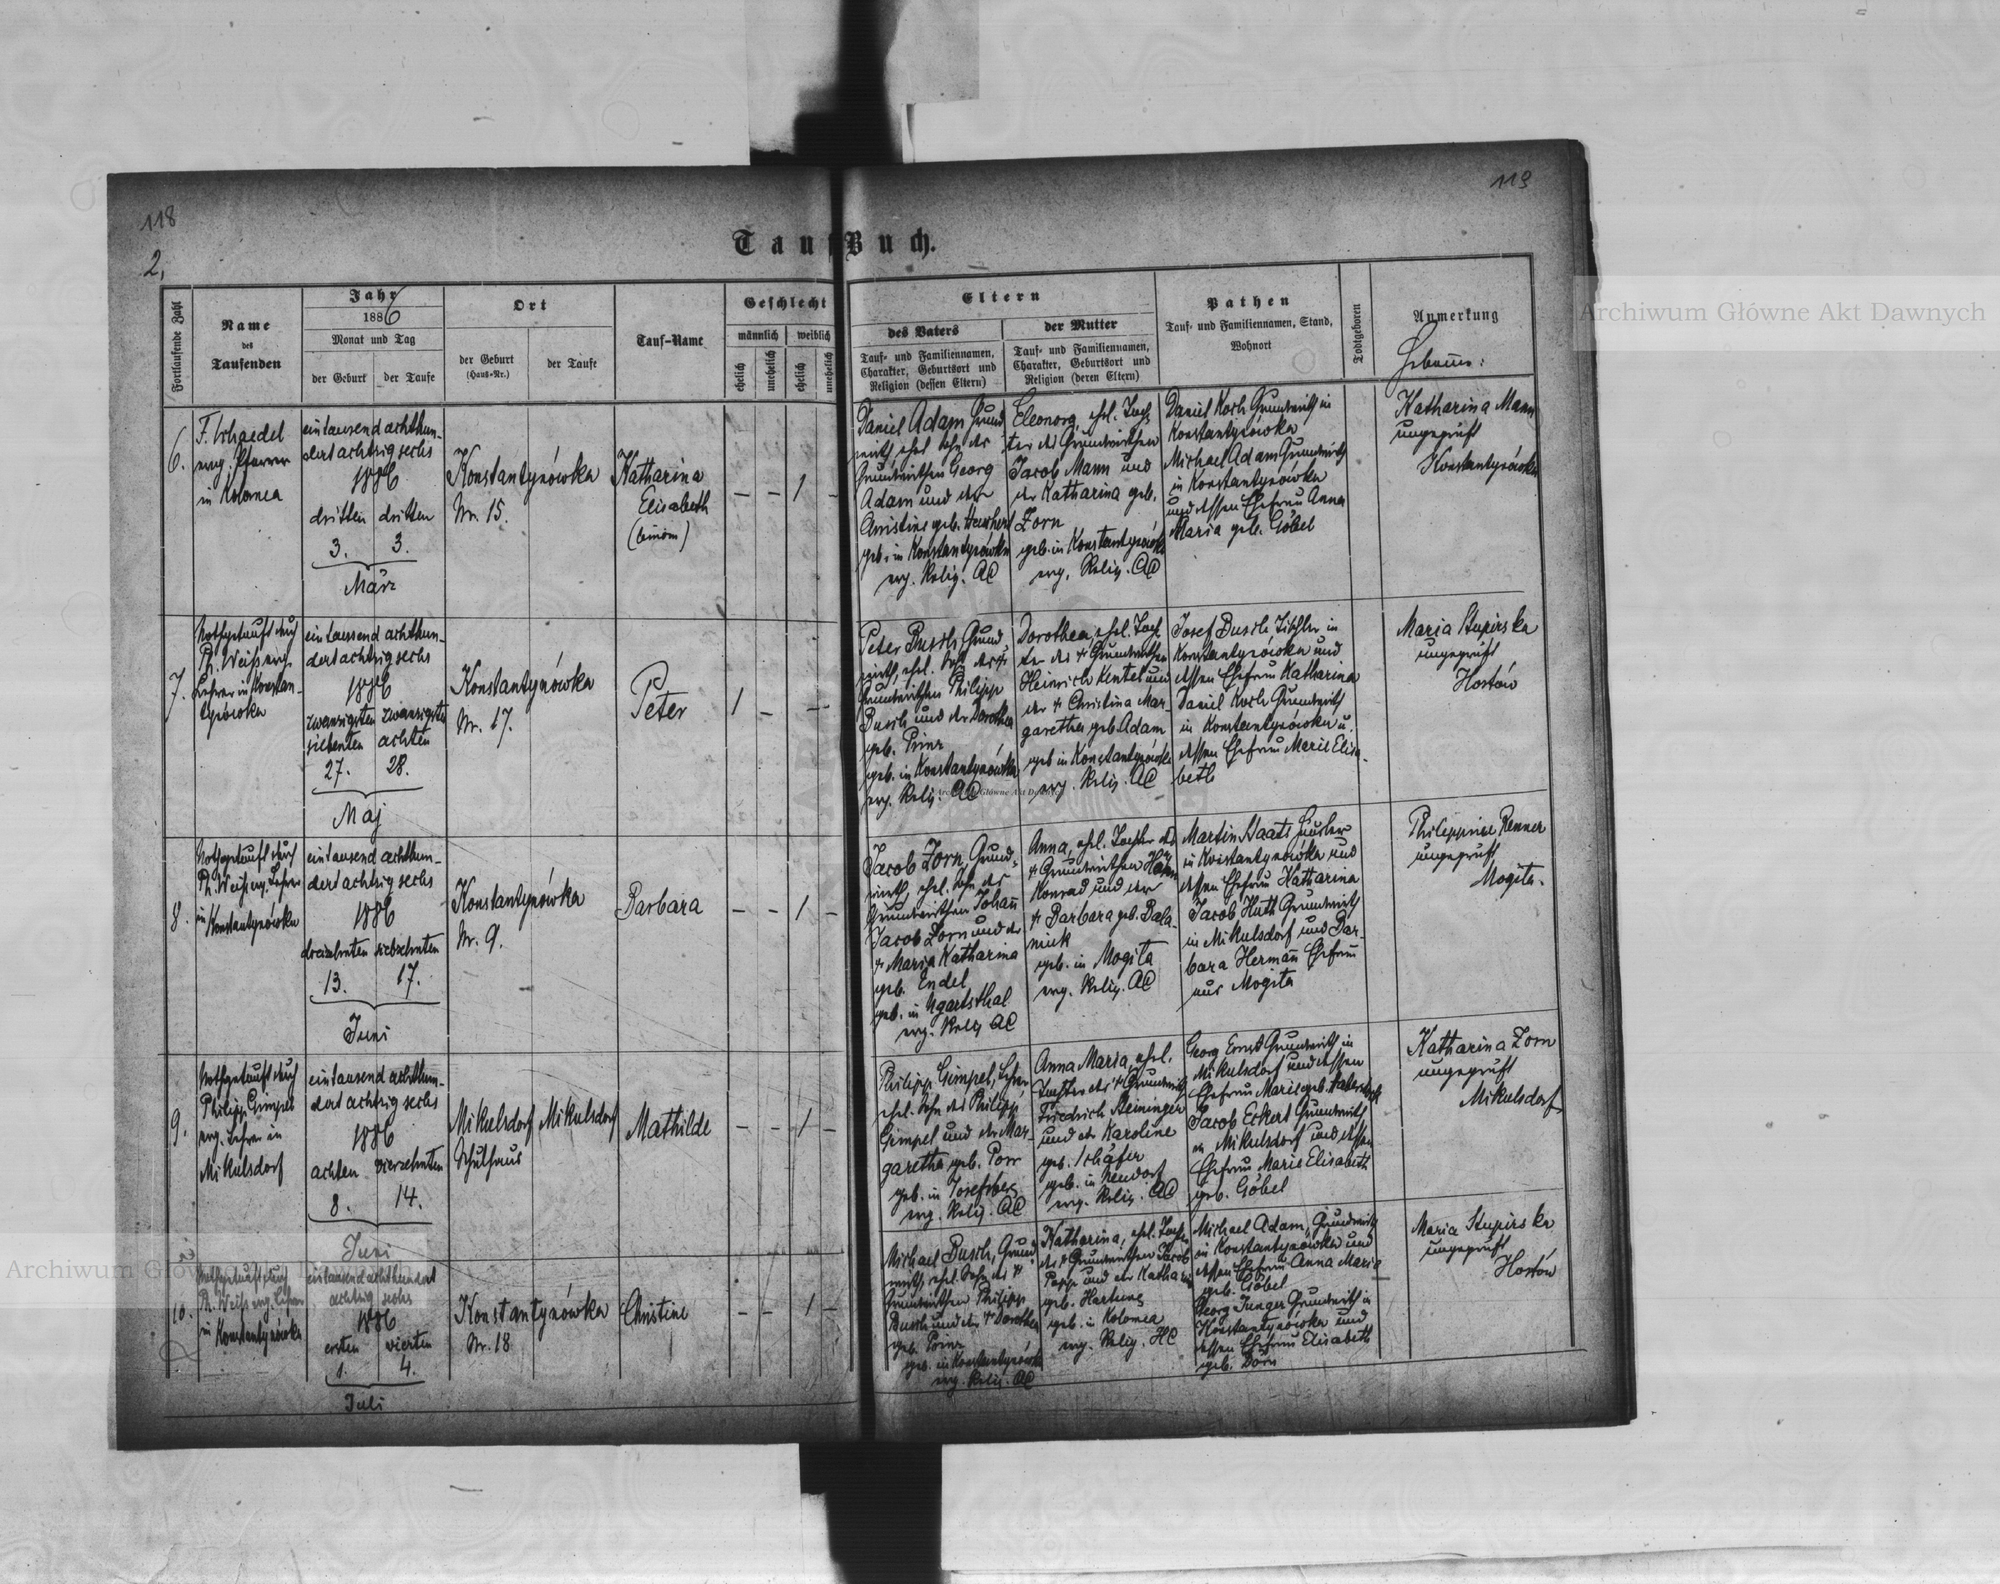 118
119
2,
Tauf-Buch.
Fortlaufende Zahl
Name
des
Taufenden
Jahr
1886
Monat und Tag
der Geburt
der Taufe
Ort
der Geburt
(Haus-Nr.)
der Taufe
Tauf-Name
Geschlecht
männlich
weiblich
ehelich
unehelich
ehelich
unehelich
Eltern
des Vaters
Tauf- und Familiennamen,
Charakter, Geburtsort und
Religion (dessen Eltern)
der Mutter
Tauf- und Familiennamen,
Charakter, Geburtsort und
Religion (deren Eltern)
Pathen
Tauf- und Familiennamen, Stand,
Wohnort
Todtgeboren
Anmerkung
6.
F. Schaedel
evng. Pfarrer
in Kolomea
eintausend achthun-
dertachtzigsechs
1886
dritten dritten
3. 3.
März
Konstantynówka
Nr. 15.
Katharina
Elisabeth
(binom)
– – 1 –
Daniel Adam Grund
wirth ehel. Sohn des
Grundwirthen Georg
Adam und der
Christine geb.
geb. in Konstantynówka
evg. Relig. AC
Eleonora, ehel. Toch
ter des Grundwirthen
Jacob Mann und
der Katharina geb.
Zorn
geb. in Konstantynówka
evg. Relig. AC
Daniel Koch Grundwirth in
Konstantynówka
Michael Adam Grundwirth
in Konstantynówka
und dessen Ehefrau Anna
Maria geb. Göbel
Katharina Mann
ungeprüft
Konstantynówka
7.
Nothgetauft durch
Ph. Weiß evg.
Lehrer in Konstan-
tynówka
eintausend achthun-
dertachtzigsechs
1886
zwanzigsten zwanzigsten
siebenten achten
27. 28.
Maj
Konstantynówka
Nr. 17.
Peter
1 – –
Peter Busch Grund
wirth, ehel. Sohn des †
Grundwirthen Philipp
Busch und der Dorothea
geb. Prinz
geb. in Konstantynówka
evg. Relig. AC
Dorothea, ehel. Toch
ter des † Grundwirthen
Heinrich Kentel und
der † Christina Mar-
garetha geb. Adam
geb. in Konstantynówka
evg. Relig. AC
Josef Busch Tischler in
Konstantynówka und
dessen Ehefrau Katharina
Daniel Koch Grundwirth
in Konstantynówka u.
dessen Ehefrau Marie Elisa-
beth
Maria Stupirska
ungeprüft
Hostów
8.
Nothgetauft durch
Ph. Weiß evg. Lehrer
in
Konstantynówka
eintausend achthun-
dertachtzigsechs
1886
dreizehnten siebzehnten
13. 17.
Juni
Konstantynówka
Nr. 9.
Barbara
– – 1 –
Jacob Zorn, Grund-
wirth, ehel. Sohn des
Grundwirthen Johann
Jacob Zorn und der
† Maria Katharina
geb. Endel
geb. in Ugartsthal
evg. Relig AC
Anna, ehel. Tochter des
† Grundwirthen
Konrad und der
† Barbara geb. Bala-
niuk
geb. in Mogita
evg. Relig. AC
Martin Staats Häusler
in Konstantynówka und
dessen Ehefrau Katharina
Jacob Huth Grundwirth
in Mikulsdorf und Bar-
bara Hermann Ehefrau
aus Mogita
Philippine Renner
ungeprüft
Mogita.
9.
Nothgetauft durch
Philipp Gimpel
evg. Lehrer in
Mikulsdorf
eintausend achthun-
dertachtzigsechs
1886
achten vierzehnten
8. 14.
Juni
Mikulsdorf Mikulsdorf
Schulhaus
Mathilde
– – 1 –
Philipp Gimpel, Lehrer
ehel. Sohn des Philipp
Gimpel und der Mar-
garetha geb. Porr
geb. in Josefsberg
evg. Relig. AC
Anna Maria, ehel.
Tochter des † Grundwirth
Friedrich Steininger
und der Karoline
geb. Schäfer
geb. in Neudorf
evg. Relig. AC
Georg Ernst Grundwirth in
Mikulsdorf und dessen
Ehefrau Marie geb.
Jacob Eckert Grundwirth
in Mikulsdorf und dessen
Ehefrau Marie Elisabeth
geb. Göbel
Katharina Zorn
ungeprüft
Mikulsdorf
10.
Nothgetauft durch
Ph. Weiß evg. Lehrer
in Konstantynówka
eintausend achthundert
achtzig sechs
1886
ersten vierten
1. 4.
Juli
Konstantynówka
Nr. 18
Christine
– – 1 –
Michael Busch, Grund
wirth, ehel. Sohn des †
Grundwirthen Philipp
Busch und der † Dorothea
geb. Prinz
geb. in Konstantynówka
evg. Relig. AC
Katharina, ehel. Tochter
des † Grundwirthen Jacob
Popp und der Katharina
geb. Hartung
geb. in Kolomea
evg. Relig. HC
Michael Adam, Grundwirth
in Konstantynówka und
dessen Ehefrau Anna Marie
geb. Göbel
Georg Junger Grundwirth in
Konstantynówka und
dessen Ehefrau Elisabeth
geb. Dörr
Maria Stupirska
ungeprüft
Hostów
Archiwum Główne Akt Dawnych
Archiwum Główne Akt Dawnych
Archiwum Główne Akt Dawnych